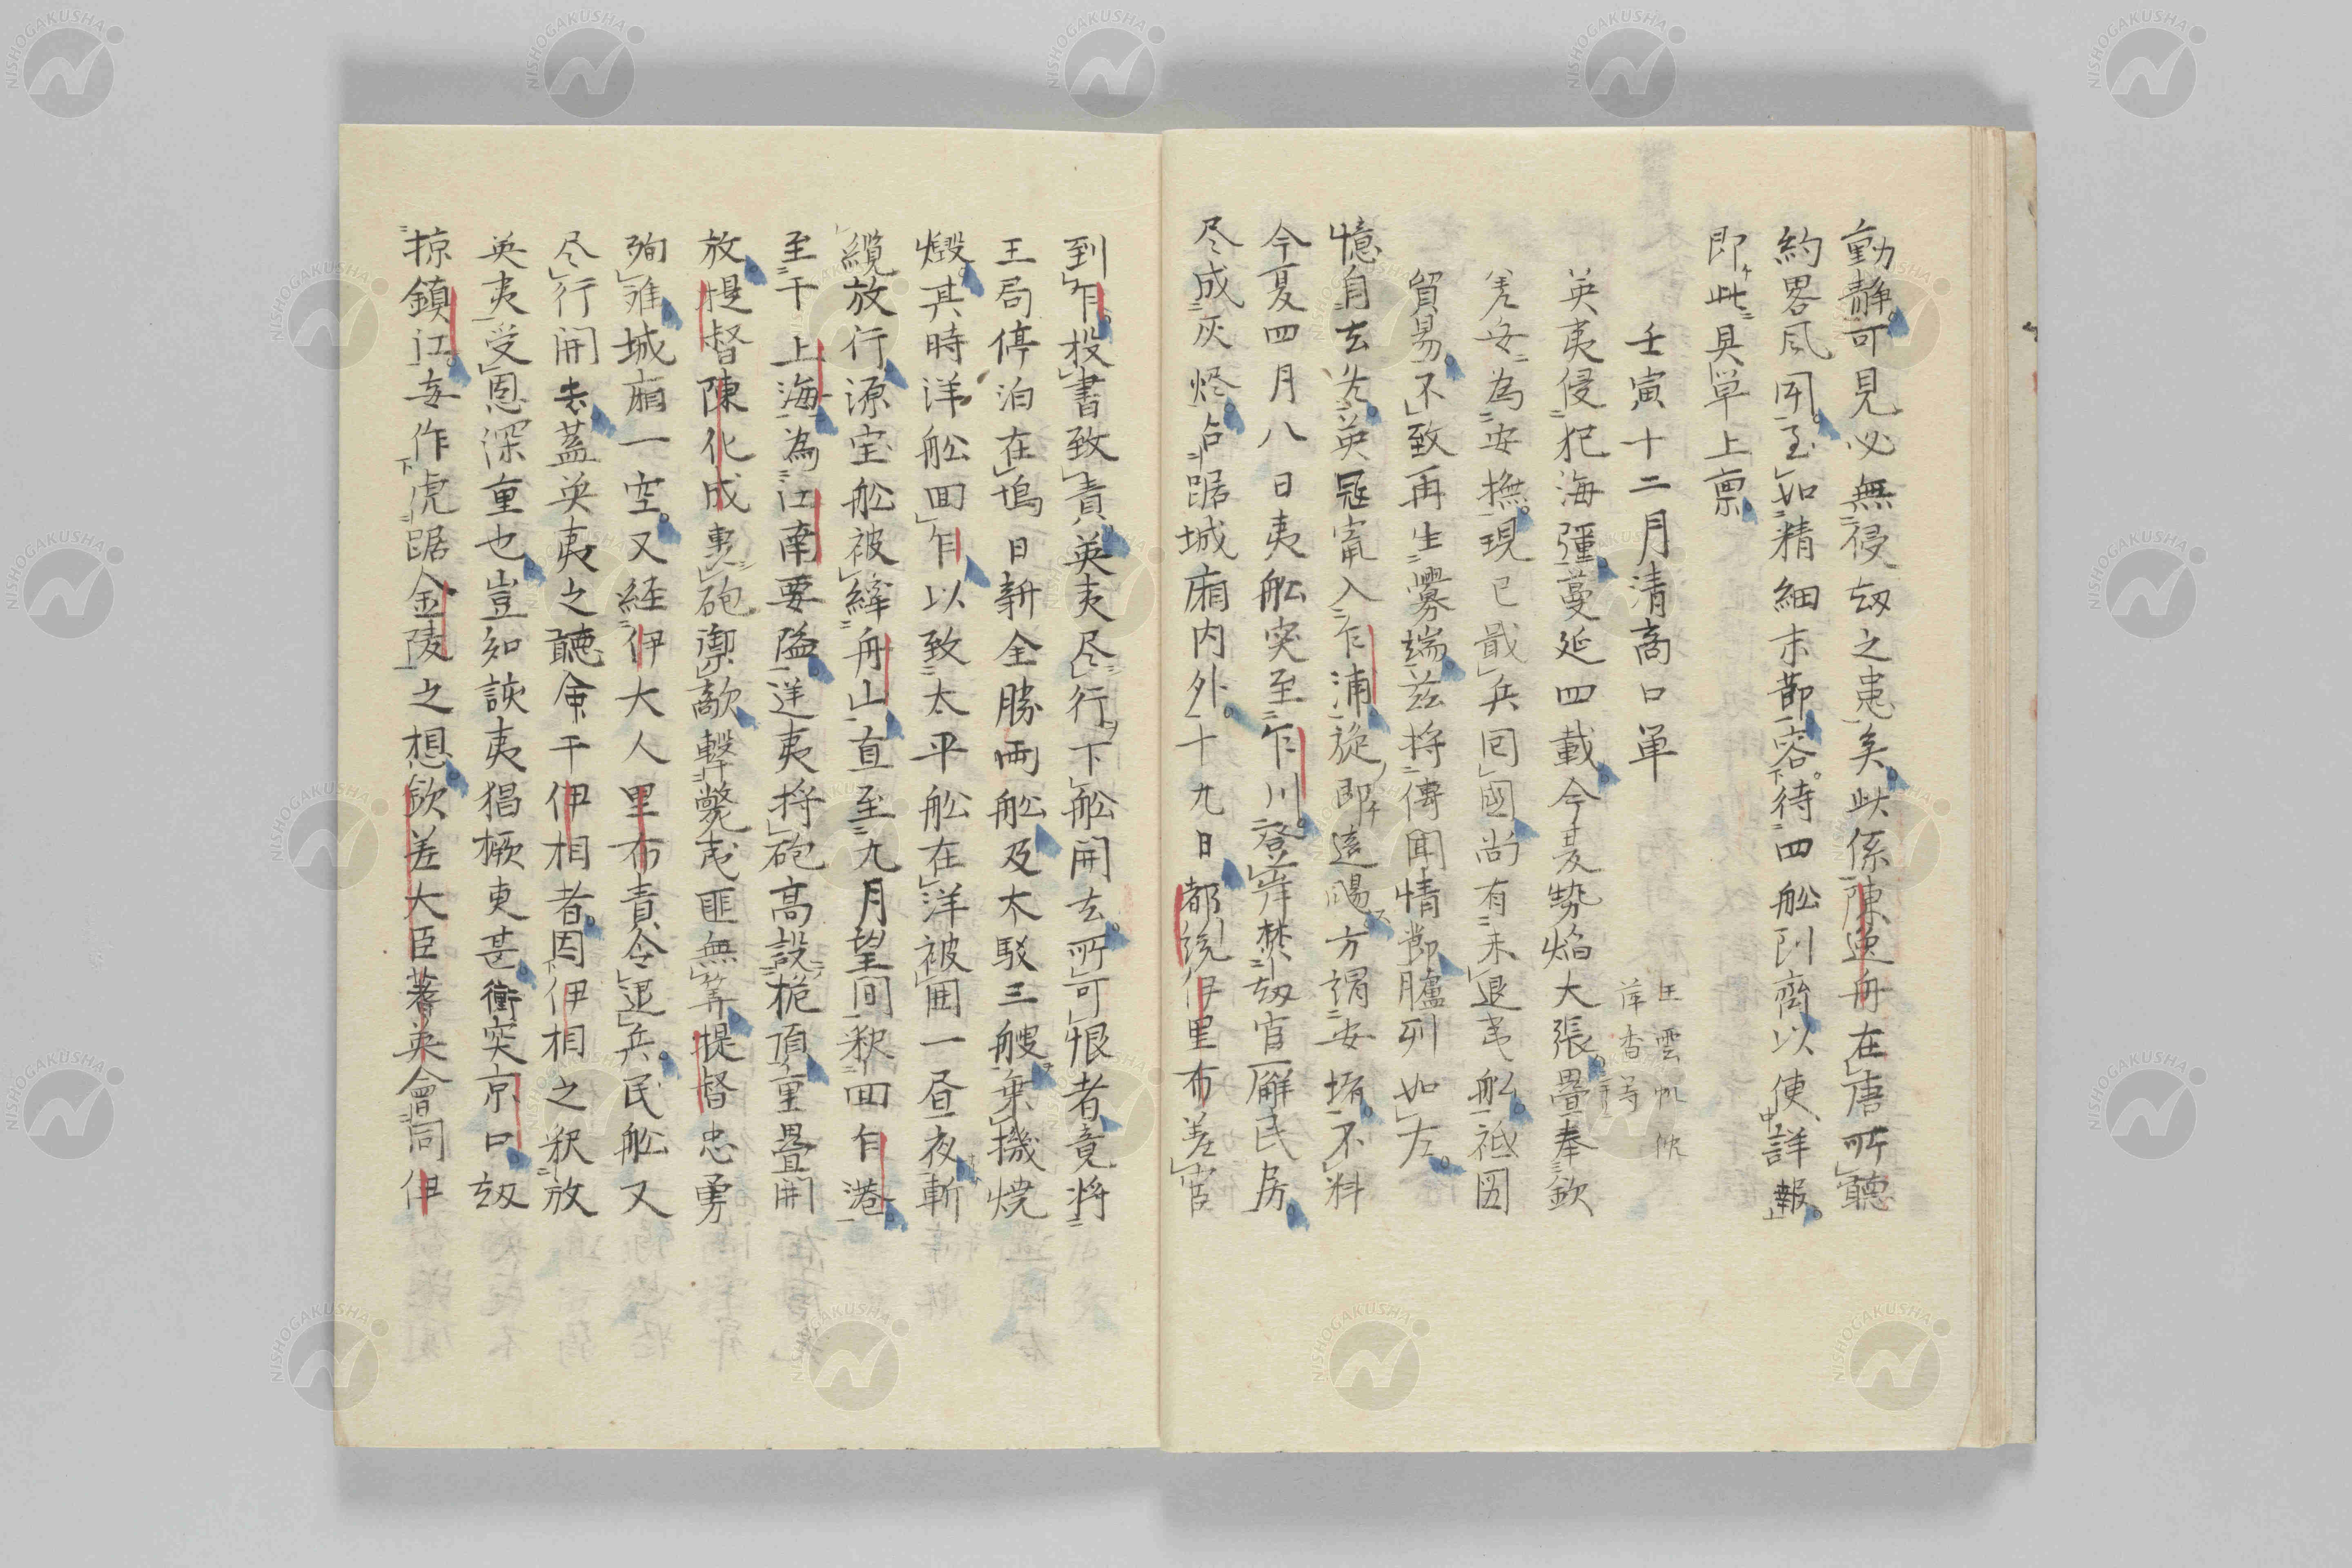 動静可見必無侵劫之患矣此係陳逸舟在唐所聽
約畧風聞至如精細末節容待四舩到齊以使詳報
即此具草上稟
壬寅十二月清商口單
王雲帆
萍香等
英夷侵犯海彊蔓延四載今夏勢焰大張疊奉欽
差安為安撫現已戢兵回國尚有未退夷舩祗因
貿易不致再生釁端茲将傳聞情節臚列如左
憶自去冬英冦竄入乍浦旋即遠颺方謂安堵不料
今夏四月八日夷舩突至乍川登岸焚劫官廨民房
尽成灰燼占踞城廂内外十九日都統伊里布差官
到乍投書致責英夷尽行下舩開去所可恨者竟将
王局停泊在塢日新全勝両舩及木駁三艘棄機焼
燬其時洋舩回乍以致太平舩在洋被困一昼夜斬
纜放行源宝舩被縴舟山直至九月望间釈回乍港
至于上海為江南要隘逆夷将砲高設桅頂重畳開
放提督陳化成夷砲禦敵轟斃夷匪無筭提督忠勇
殉难城廂一空又経伊大人里布責令退兵民舩又
尽行開去蓋英夷之聽命于伊相者因伊相之釈放
英夷受恩深重也豈知該夷猖橛更甚衝突京口劫
掠鎮江妄作虎踞金陵之想欽差大臣蓍英會同伊